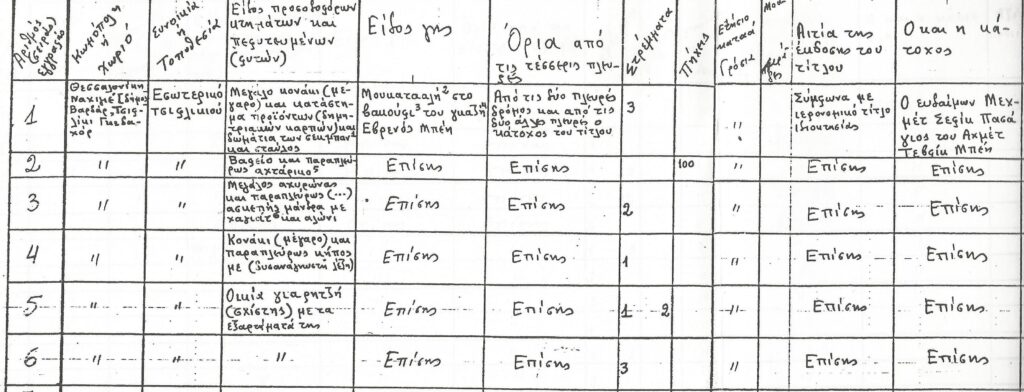 Αριθμός (σειράς) εγγραφής
Κωμόπολη ή Χωριό
Συνοικία ή Τοποθεσία
Είδος προσοδοφόρων
κτημάτων και
πεφυτευμένων
(φυτών)
Είδος γης
Όρια από
τις τέσσερις πλευρές
Στρέμματα
Πήχεις
Γρόσια
Αιτία της
έκδοσης του
τίτλου
Ο και η κά-
τοχος
1
Θεσσαλονίκη
Ναχιγιέ [δήμος]
Βαρδάρ, Τσιφ-
λίκι Γκιδα-
χόρ
Εσωτερικό
τσιφλικιού
Μεγάλο κονάκι (μέ-
γαρο) και κατάστη-
μα προϊόντων (δημη-
τριακών καρπών) και
δωμάτια των σεϊμπάν
και σταύλος
Μουκαταλή² στο
βακούφι³ του γιαζή
Εβρενός Μπέη
Από τις δύο πλευρές
δρόμος και από τις
δύο άλλες πλευρές ο
κάτοχος του τίτλου
3
"
Σύμφωνα με
ιερονομικό τίτλο
ιδιοκτησίας
Ο ευδαίμων Μεχ-
μέτ Σεφίκ Πασά
γιος του Αχμέτ
Τεβφίκ Μπέη
2 " " Βαφείο και παραπλεύ-
ρως αχτάρικο⁵ Επίσης Επίσης 100 " Επίσης Επίσης
3 " " Μεγάλος αχυρώνας
και παραπλεύρως (...)
ασκεπής μάντρα με
χαγιάτ⁶ και αλώνι Επίσης Επίσης 2 " Επίσης Επίσης
4 " " Κονάκι (μέγαρο) και
παραπλεύρως κήπος
με (δυσανάγνωστη λέξη) Επίσης Επίσης 1 " Επίσης Επίσης
5 " " Οικία γιαρητζή
(σχίστης) με τα
εξαρτήματά της Επίσης Επίσης 1 2 " Επίσης Επίσης
6 " " " Επίσης Επίσης 3 " Επίσης Επίσης